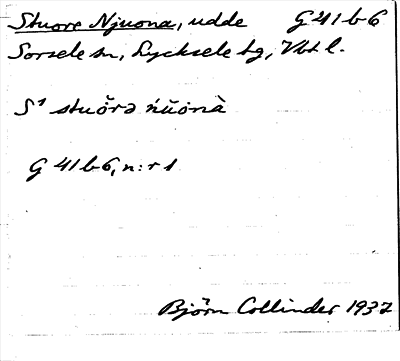 Stuore Njuona, udde G 41 b 6
Sorsele sn, Lycksele tg, Vbt l.
S¹ stuŏrə ńŭonà
G 41 b 6, n:r 1
Björn Collinder 1937